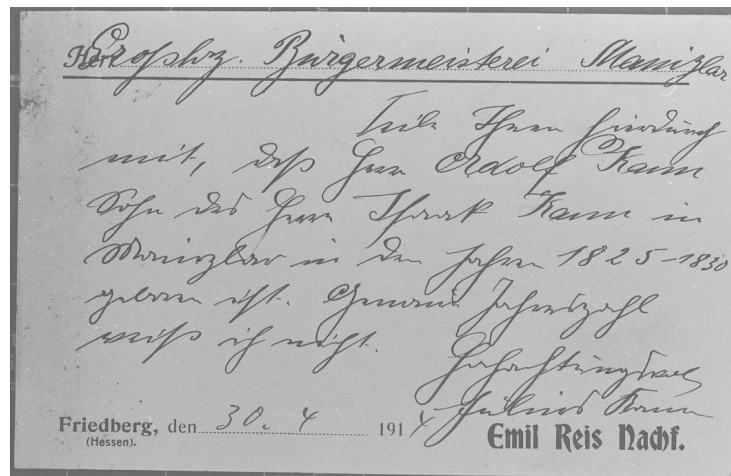 Herrn Großhrz. Bürgermeisterei Mainzlar
Teile Ihnen hierdurch
mit, daß Herr Adolf Kann
Sohn des Herrn Isaak Kann in
Mainzlar in den Jahren 1825-1830
geboren ist. Genaue Jahreszahl
weiß ich nicht.
Hochachtungsvoll
Julius Kann
Friedberg, den 30. 4 1914
(Hessen).
Emil Reis Nachf.